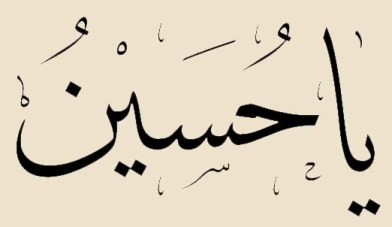 يا حُسَيْنُ